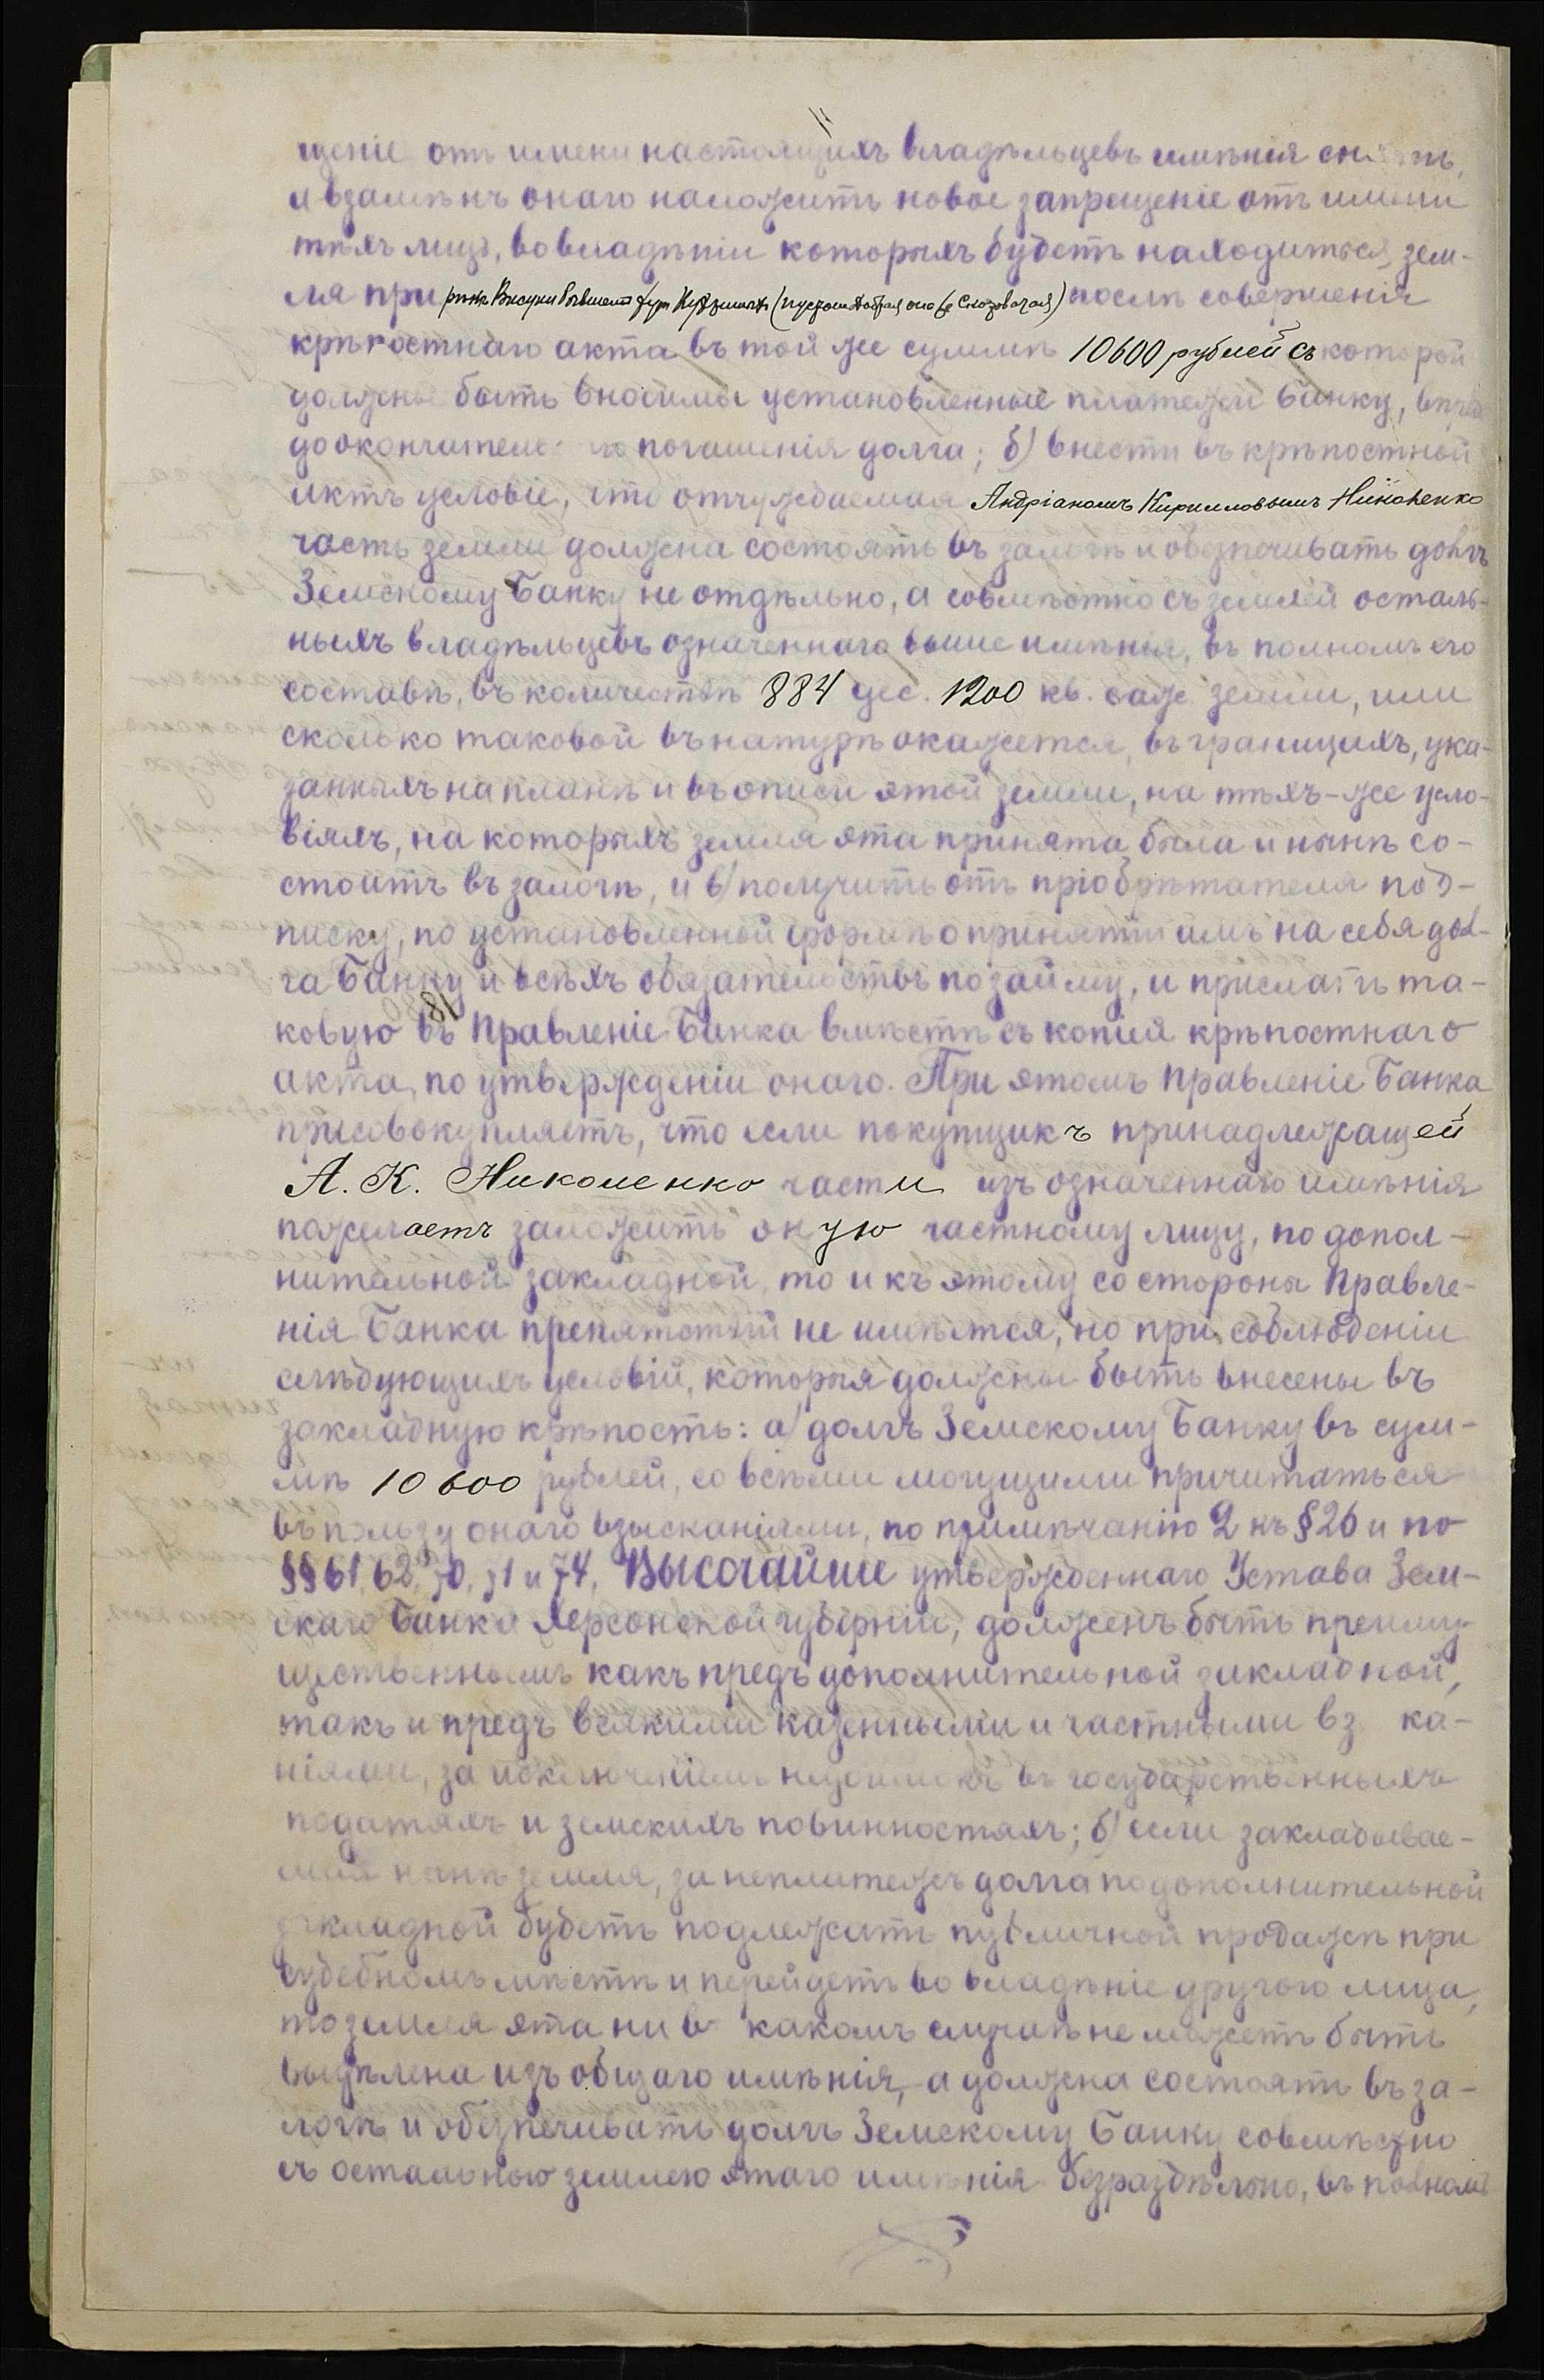 щеніе отъ имени настоящихъ владѣльцевъ имѣнія снять,
и взамѣнъ онаго наложить новое запрещеніе отъ имени
тѣхъ лицъ, во владѣніи которыхъ будетъ находиться зем-
ля при рѣкѣ Висуни бывшей (пустошь она же) послѣ совершенія
крѣпостнаго акта въ той же суммѣ 10600 рублей съ которой
должны быть вносимы установленные платежи Банку, впредь
до окончательнаго погашенія долга; б) внести въ крѣпостной
актъ условіе, что отчуждаемая Андріаномъ Кирилловымъ Николенко
часть земли должна состоять въ залогѣ и обезпечивать долгъ
Земскому Банку не отдѣльно, а совмѣстно съ землей осталь-
ныхъ владѣльцевъ означеннаго выше имѣнія, въ полномъ его
составѣ, въ количествѣ 884 дес. 1200 кв. саж. земли, или
сколько таковой въ натурѣ окажется, въ границахъ, ука-
занныхъ на планѣ и въ описи этой земли, на тѣхъ-же усло-
віяхъ, на которыхъ земля эта принята была и нынѣ со-
стоитъ въ залогѣ, и в) получить отъ пріобрѣтателя под-
писку, по установленной формѣ о принятіи имъ на себя дол-
га Банку и всѣхъ обязательствъ по займу, и прислать та-
ковую въ Правленіе Банка вмѣстѣ съ копіей крѣпостнаго
акта, по утвержденіи онаго. При этомъ Правленіе Банка
присовокупляетъ, что если покупщикъ принадлежащей
А. К. Николенко части изъ означеннаго имѣнія
пожелаетъ заложить оную частному лицу, по допол-
нительной закладной, то и къ этому со стороны Правле-
нія Банка препятствій не имѣется, но при соблюденіи
слѣдующихъ условій, которыя должны быть внесены въ
закладную крѣпость: а) долгъ Земскому Банку въ сум-
мѣ 10600 рублей, со всѣми могущими причитаться
въ пользу онаго взысканіями, по примѣчанію 2 къ § 26 и по
§§ 61, 62, 70, 71 и 74, Высочайше утвержденнаго Устава Зем-
скаго Банка Херсонской губерніи, долженъ быть преиму-
щественнымъ какъ предъ дополнительной закладной,
такъ и предъ всякими казенными и частными вз ка-
ніями, за исключеніемъ недоимокъ въ государственныхъ
податяхъ и земскихъ повинностяхъ; б) если закладывае-
мая нынѣ земля, за неплатежъ долга по дополнительной
закладной будетъ подлежать публичной продажѣ при
судебномъ мѣстѣ и перейдетъ во владѣніе другого лица,
то земля эта ни въ какомъ случаѣ не можетъ быть
выдѣлена изъ общаго имѣнія, а должна состоять въ за-
логѣ и обезпечивать долгъ Земскому Банку совмѣстно
съ остальною землею этаго имѣнія безраздѣльно, въ полномъ